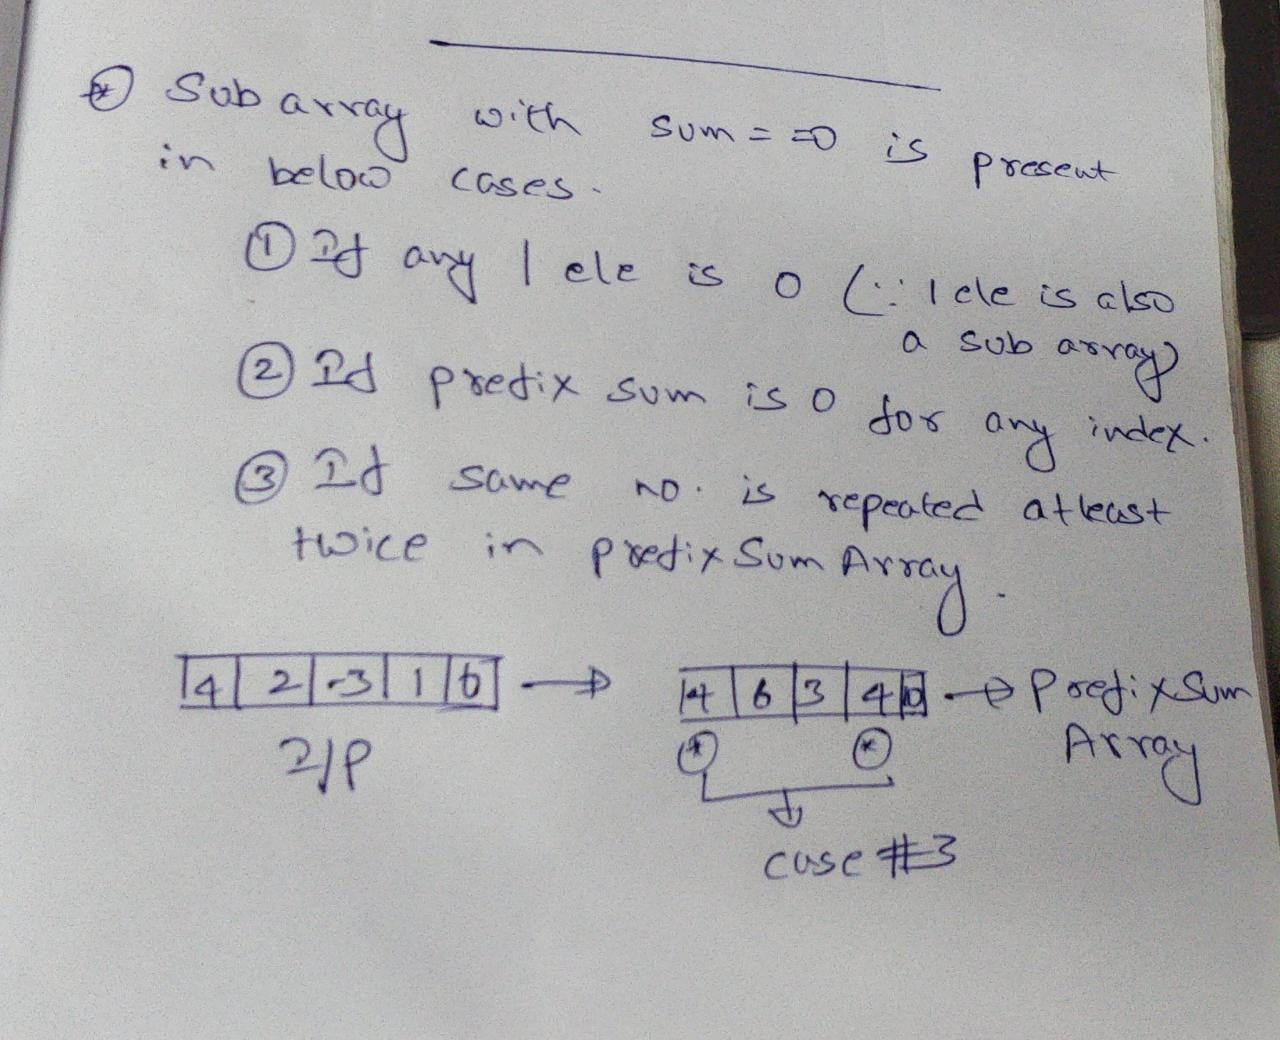 ⊛ Sub array with sum = =0 is present
in below cases.
① If any 1 ele is 0 (∵ 1 ele is also
a sub array)
② If prefix sum is 0 for any index.
③ If same no. is repeated atleast
twice in prefixSum Array.
4 2 -3 1 6 → 4 6 3 4 10 → PrefixSum
I/P Array
case #3